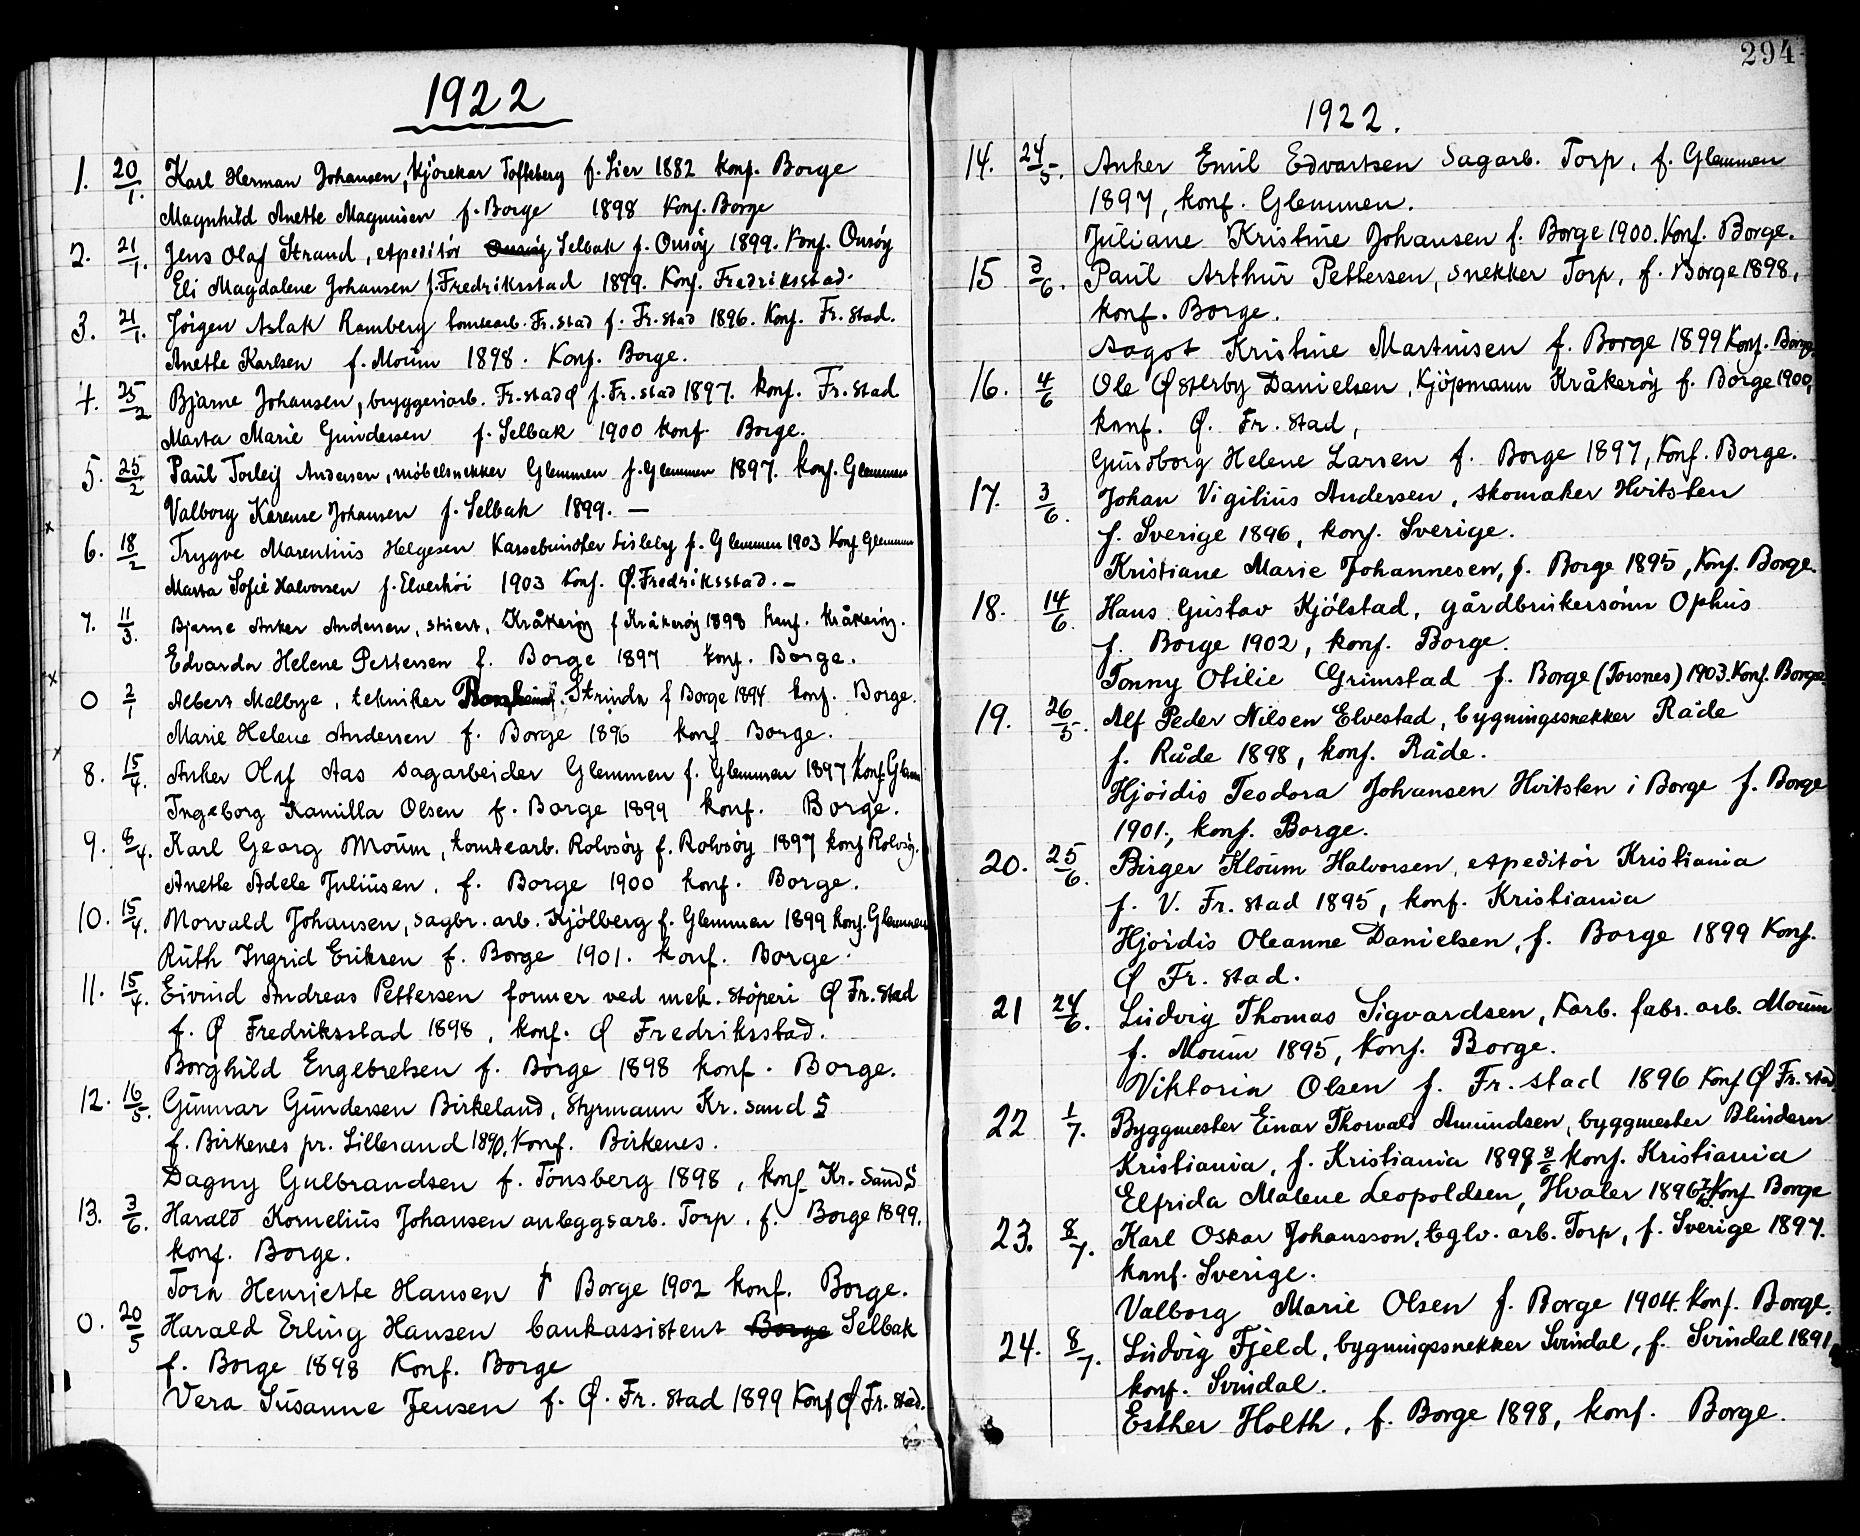 1922
1. 20/1. Karl Herman Johansen, kjörekar Tofteberg f. Lier 1882 konf. Borge
Magnhild Anette Magnusen f. Borge 1898 Konf. Borge
2. 21/1. Jens Olaf Strand, expeditör Onsöy Selbak f. Onsöy 1899. Konf. Onsöy
Eli Magdalene Johansen f. Fredriksstad 1899. Konf. Fredriksstad.
3. 21/1. Jörgen Aslak Ramberg tomtearb. Fr.stad f. Fr.stad 1896. Konf. Fr.stad.
Anette Karlsen f. Moum 1898. Konf. Borge.
4. 25/2 Bjarne Johansen, bryggeriarb. Fr.stad Ø f. Fr.stad 1897. konf. Fr.stad
Marta Marie Gundersen f. Selbak 1900 konf. Borge.
5. 25/2 Paul Torleif Andersen, möbelsnekker Glemmen f. Glemmen 1897. konf. Glemmen
Valborg Karense Johansen f. Selbak 1899. —
6. 18/2 Trygve Marentius Helgesen Kassebunder Lisleby f. Glemmen 1903 Konf Glemmen
Marta Sofie Halvorsen f. Elverhöi 1903 Konf. Ø. Fredriksstad. —
7. 11/3. Bjarne Anker Andersen, stuert, Kråkeröy f Kråkeröy 1898 konf. Kråkeröy.
Edvarda Helene Pettersen f. Borge 1897 konf. Borge.
0 2/1 Albert Melbye, tekniker Strinda f Borge 1894 konf. Borge.
Marie Helene Andersen f. Borge 1896 konf Borge.
8. 15/4. Anker Olaf Aas sagarbeider Glemmen f. Glemmen 1897 Konf. Glem
Ingeborg Kamilla Olsen f. Borge 1899 konf. Borge.
9. 8/4. Karl Georg Moum, tomtearb. Rolvsöy f. Rolvsöy 1897 konf Rolvsöy.
Anette Adele Juliusen, f. Borge 1900 konf. Borge.
10. 15/4. Morvald Johansen, sagbr. arb. Kjölberg f. Glemmen 1899 konf. Glemmen
Ruth Ingrid Eriksen f. Borge 1901. konf. Borge.
11. 15/4. Eivind Andreas Pettersen former ved mek. stöperi Ø Fr.stad
f. Ø Fredriksstad 1898, konf. Ø Fredriksstad.
Borghild Engebretsen f. Borge 1898 konf. Borge.
12. 16/5. Gunnar Gundersen Birkeland, styrmann Kr. sand S
f. Birkenes pr. Lillesand 1890, Konf. Birkenes.
Dagny Gulbrandsen f. Tönsberg 1898, konf. Kr. Sand S
13. 3/6. Harald Kornelius Johansen anleggsarb. Torp. f. Borge 1899.
konf. Borge.
Tora Henriette Hansen f Borge 1902 konf. Borge.
0. 20/5 Harald Erling Hansen bankassistent Borge Selbak
f. Borge 1898 Konf. Borge
Vera Susanne Jensen f. Ø. Fr. stad 1899 Konf Ø Fr. stad.
294
1922.
14. 24/5. Anker Emil Edvartsen Sagarb. Torp, f. Glemmen
1897, konf. Glemmen.
Juliane Kristine Johansen f. Borge 1900. Konf. Borge.
15 3/6. Paul Arthur Pettersen, snekker Torp, f. Borge 1898,
konf. Borge.
Aagot Kristine Martinsen f. Borge 1899 Konf. Borge
16. 4/6 Ole Østerby Danielsen, Kjöpmann Kråkeröy f. Borge 1900,
konf. Ø. Fr. stad,
Gundborg Helene Larsen f. Borge 1897, Konf. Borge.
17. 3/6. Johan Vigilius Andersen, skomaker Hvitsten
f. Sverige 1896, konf. Sverige.
Kristiane Marie Johannesen, f. Borge 1895, Konf. Borge.
18. 14/6. Hans Gustav Kjölstad, gårdbrukersönn Ophus
f. Borge 1902, konf. Borge.
Tonny Otilie Grimstad f. Borge (Torsnes) 1903. Konf. Borge.
19. 26/5. Alf Peder Nilsen Elvestad, bygningssnekker Råde
f. Råde 1898, konf. Råde.
Hjördis Teodora Johansen Hvitsten i Borge f. Borge
1901., konf. Borge.
20. 25/6. Birger Kloum Halvorsen, expeditör Kristiania
f. V. Fr. stad 1895, konf. Kristiania
Hjördis Oleanne Danielsen, f. Borge 1899 Konf.
Ø Fr. stad.
21 24/6. Ludvig Thomas Sigvardsen, Karb. fabr. arb. Moum
f. Moum 1895, Konf. Borge.
Viktoria Olsen f. Fr. stad 1896 Konf Ø Fr. stad
22 1/7. Byggmester Einar Thorvald Amundsen, byggmester Blindern
Kristiania, f. Kristiania 1897 8/6 konf. Kristiania
Elfrida Malene Leopoldsen, Hvaler 1896 Konf Borge
23. 8/7. Karl Oskar Johansson, tglv. arb. Torp, f. Sverige 1897.
konf. Sverige.
Valborg Marie Olsen f. Borge 1904. Konf. Borge.
24. 8/7. Ludvig Fjeld, bygningssnekker Svindal, f. Svindal 1891,
konf. Svindal.
Esther Holth, f. Borge 1898, konf. Borge.